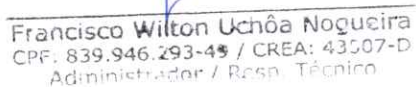 Francisco Wilton Uchôa Nogueira
CPF: 839.946.293-49 / CREA: 43507-D
Administrador / Resp. Técnico